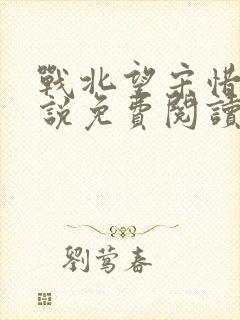 戰北望宋惜
說免費閱讀
劉莺春